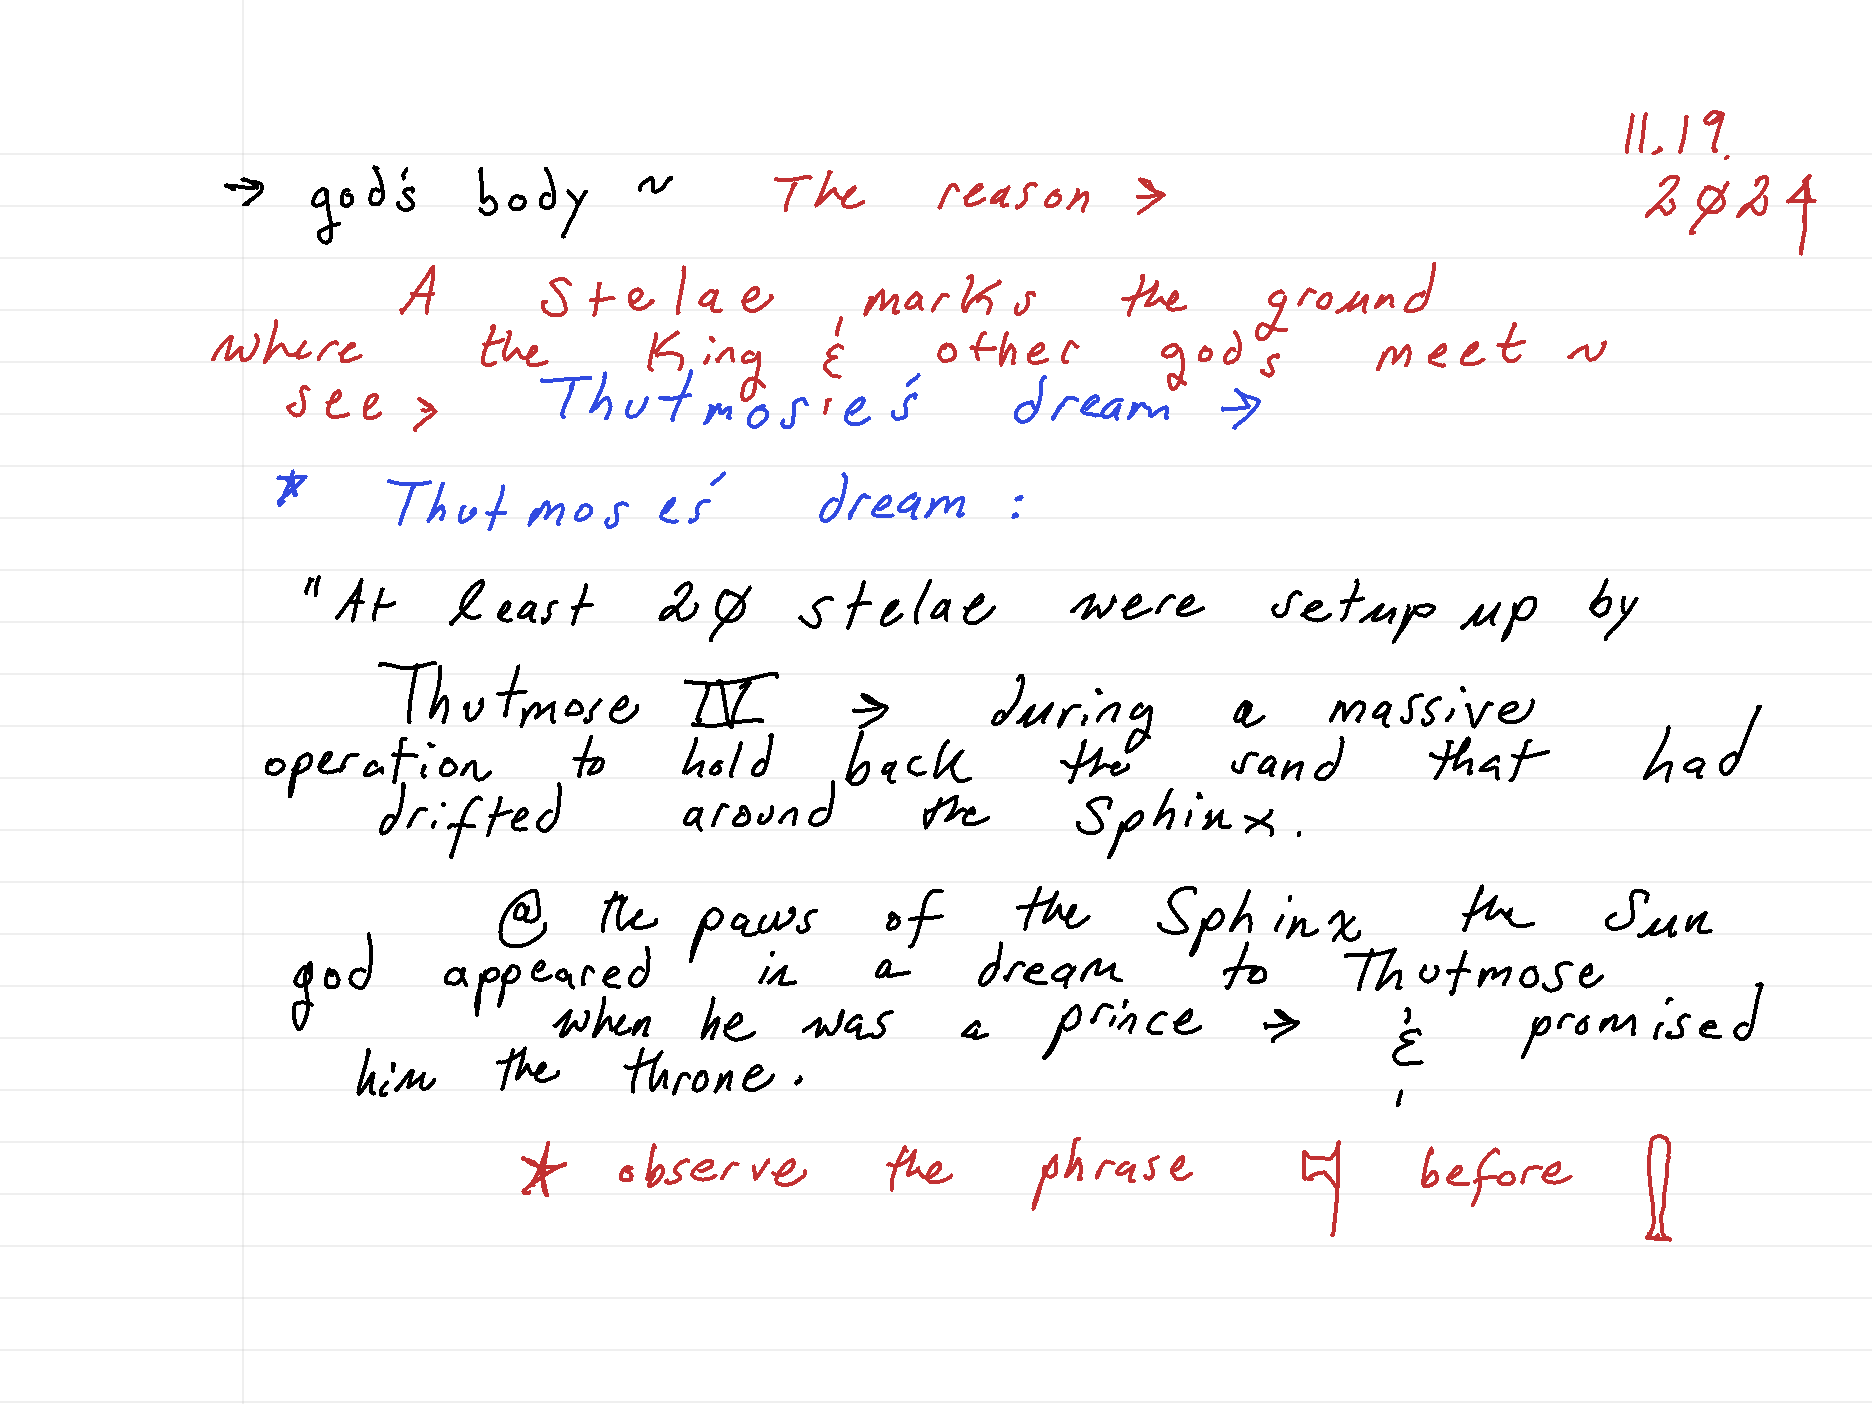 11.19.
2024
→ god's body ~ The reason →
A Stelae marks the ground
where the King & other god's meet ~
see → Thutmosie's dream →
* Thutmoses' dream :
"At least 20 stelae were setup up by
Thutmose IV → during a massive
operation to hold back the sand that had
drifted around the Sphinx.
@ the paws of the Sphinx the Sun
god appeared in a dream to Thutmose
when he was a prince → & promised
him the throne.
* observe the phrase 𓊹 before